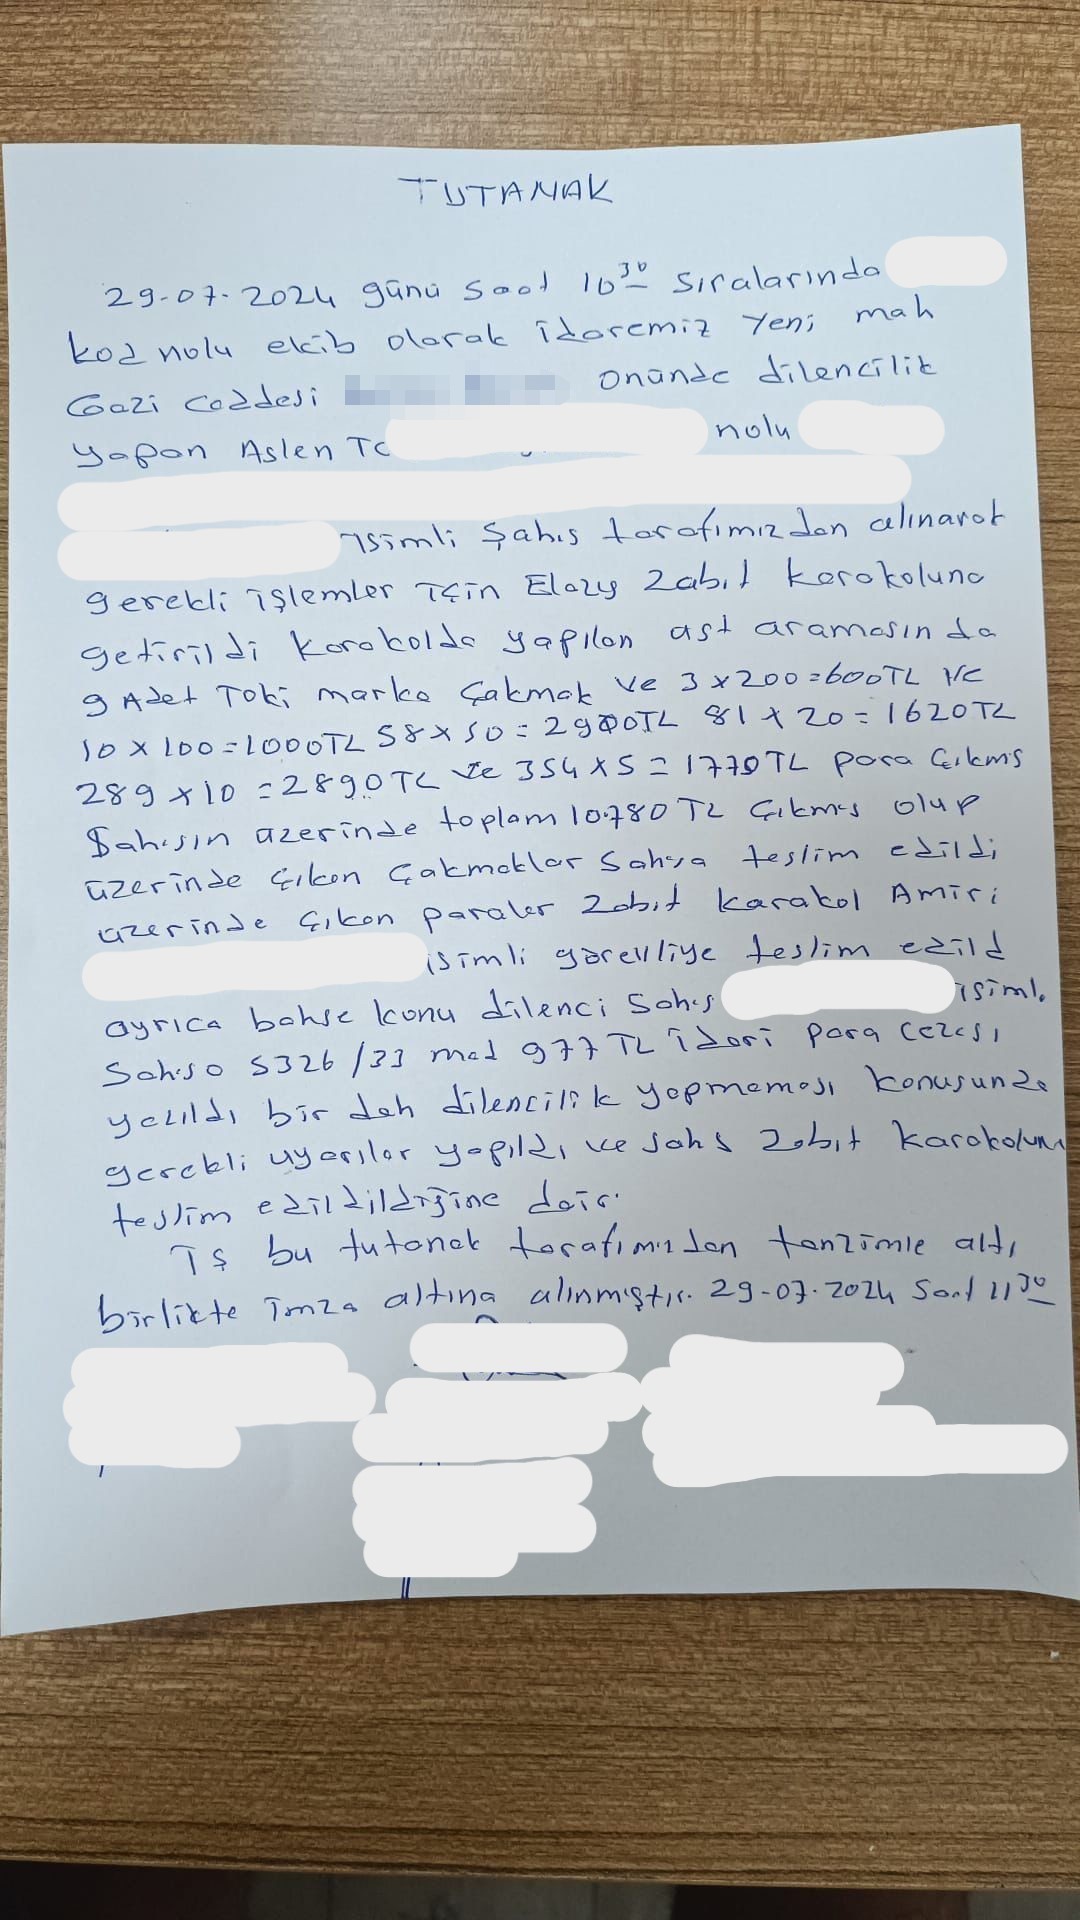 TUTANAK
29-07-2024 günü saat 10³⁰ sıralarında
kod nolu ekib olarak idaremiz Yeni mah
Gazi caddesi önünde dilencilik
yapan Aslen TC nolu
isimli Şahıs tarafımızdan alınarak
gerekli işlemler için Elazığ Zabıt karakoluna
getirildi karakolda yapılan üst aramasında
9 Adet Toki marka Çakmak ve 3 x 200 = 600 TL ve
10 x 100 = 1000 TL 58 x 50 = 2900 TL 81 x 20 = 1620 TL
289 x 10 = 2890 TL ve 354 x 5 = 1770 TL para Çıkmış
Şahısın üzerinde toplam 10.780 TL Çıkmış olup
üzerinde çıkan Çakmaklar Sahısa teslim edildi
üzerinde çıkan paralar Zabıt karakol Amiri
isimli görevliye teslim edild
ayrıca bahse konu dilenci Sahıs isimli
Sahısa 5326/33 mad 977 TL idari para cezası
yazıldı bir dah dilencilik yapmaması konusunda
gerekli uyarılar yapıldı ve sahs Zabıt karakoluna
teslim edildildiğine dair.
İş bu tutanak tarafımızdan tanzimle altı
birlikte imza altına alınmıştır. 29-07-2024 Saat 11³⁰